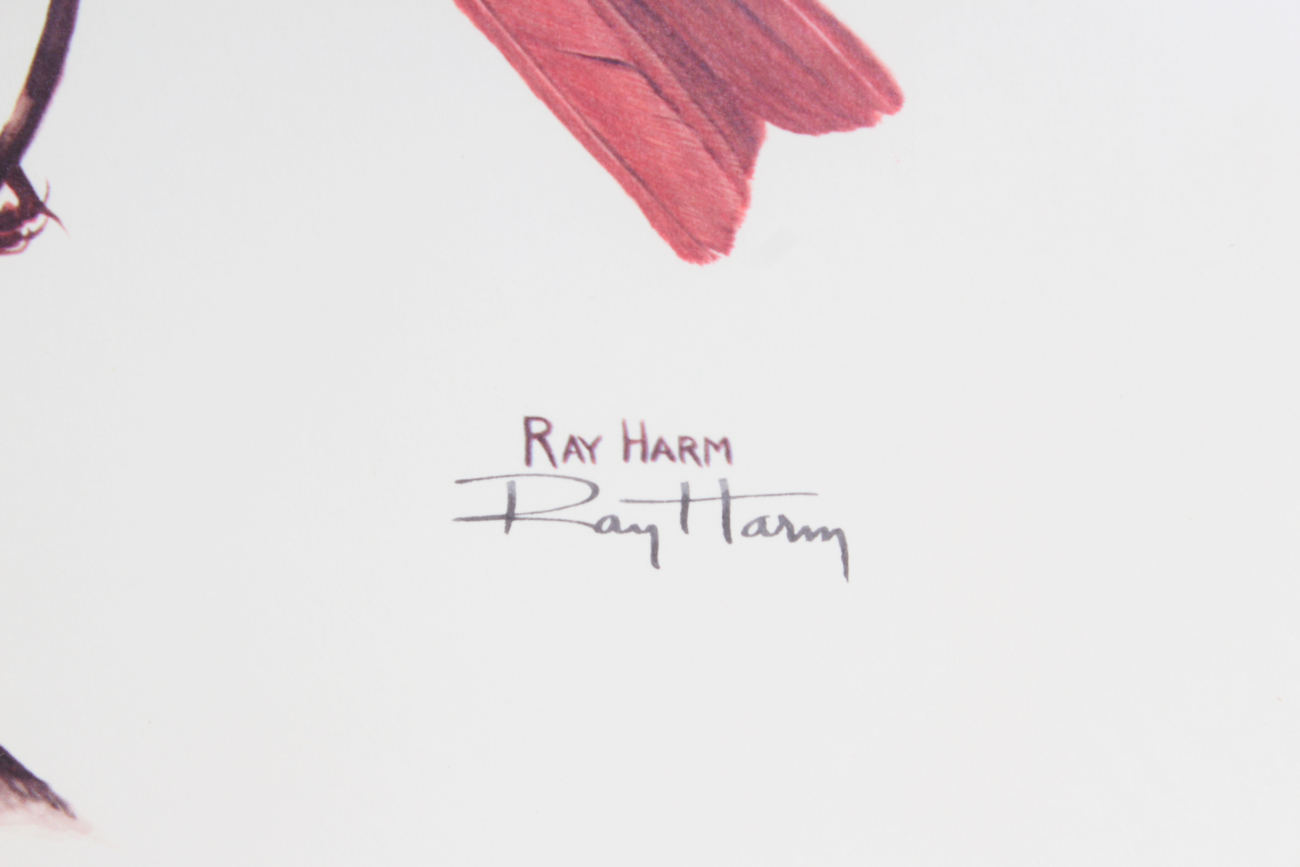 RAY HARM
Ray Harm